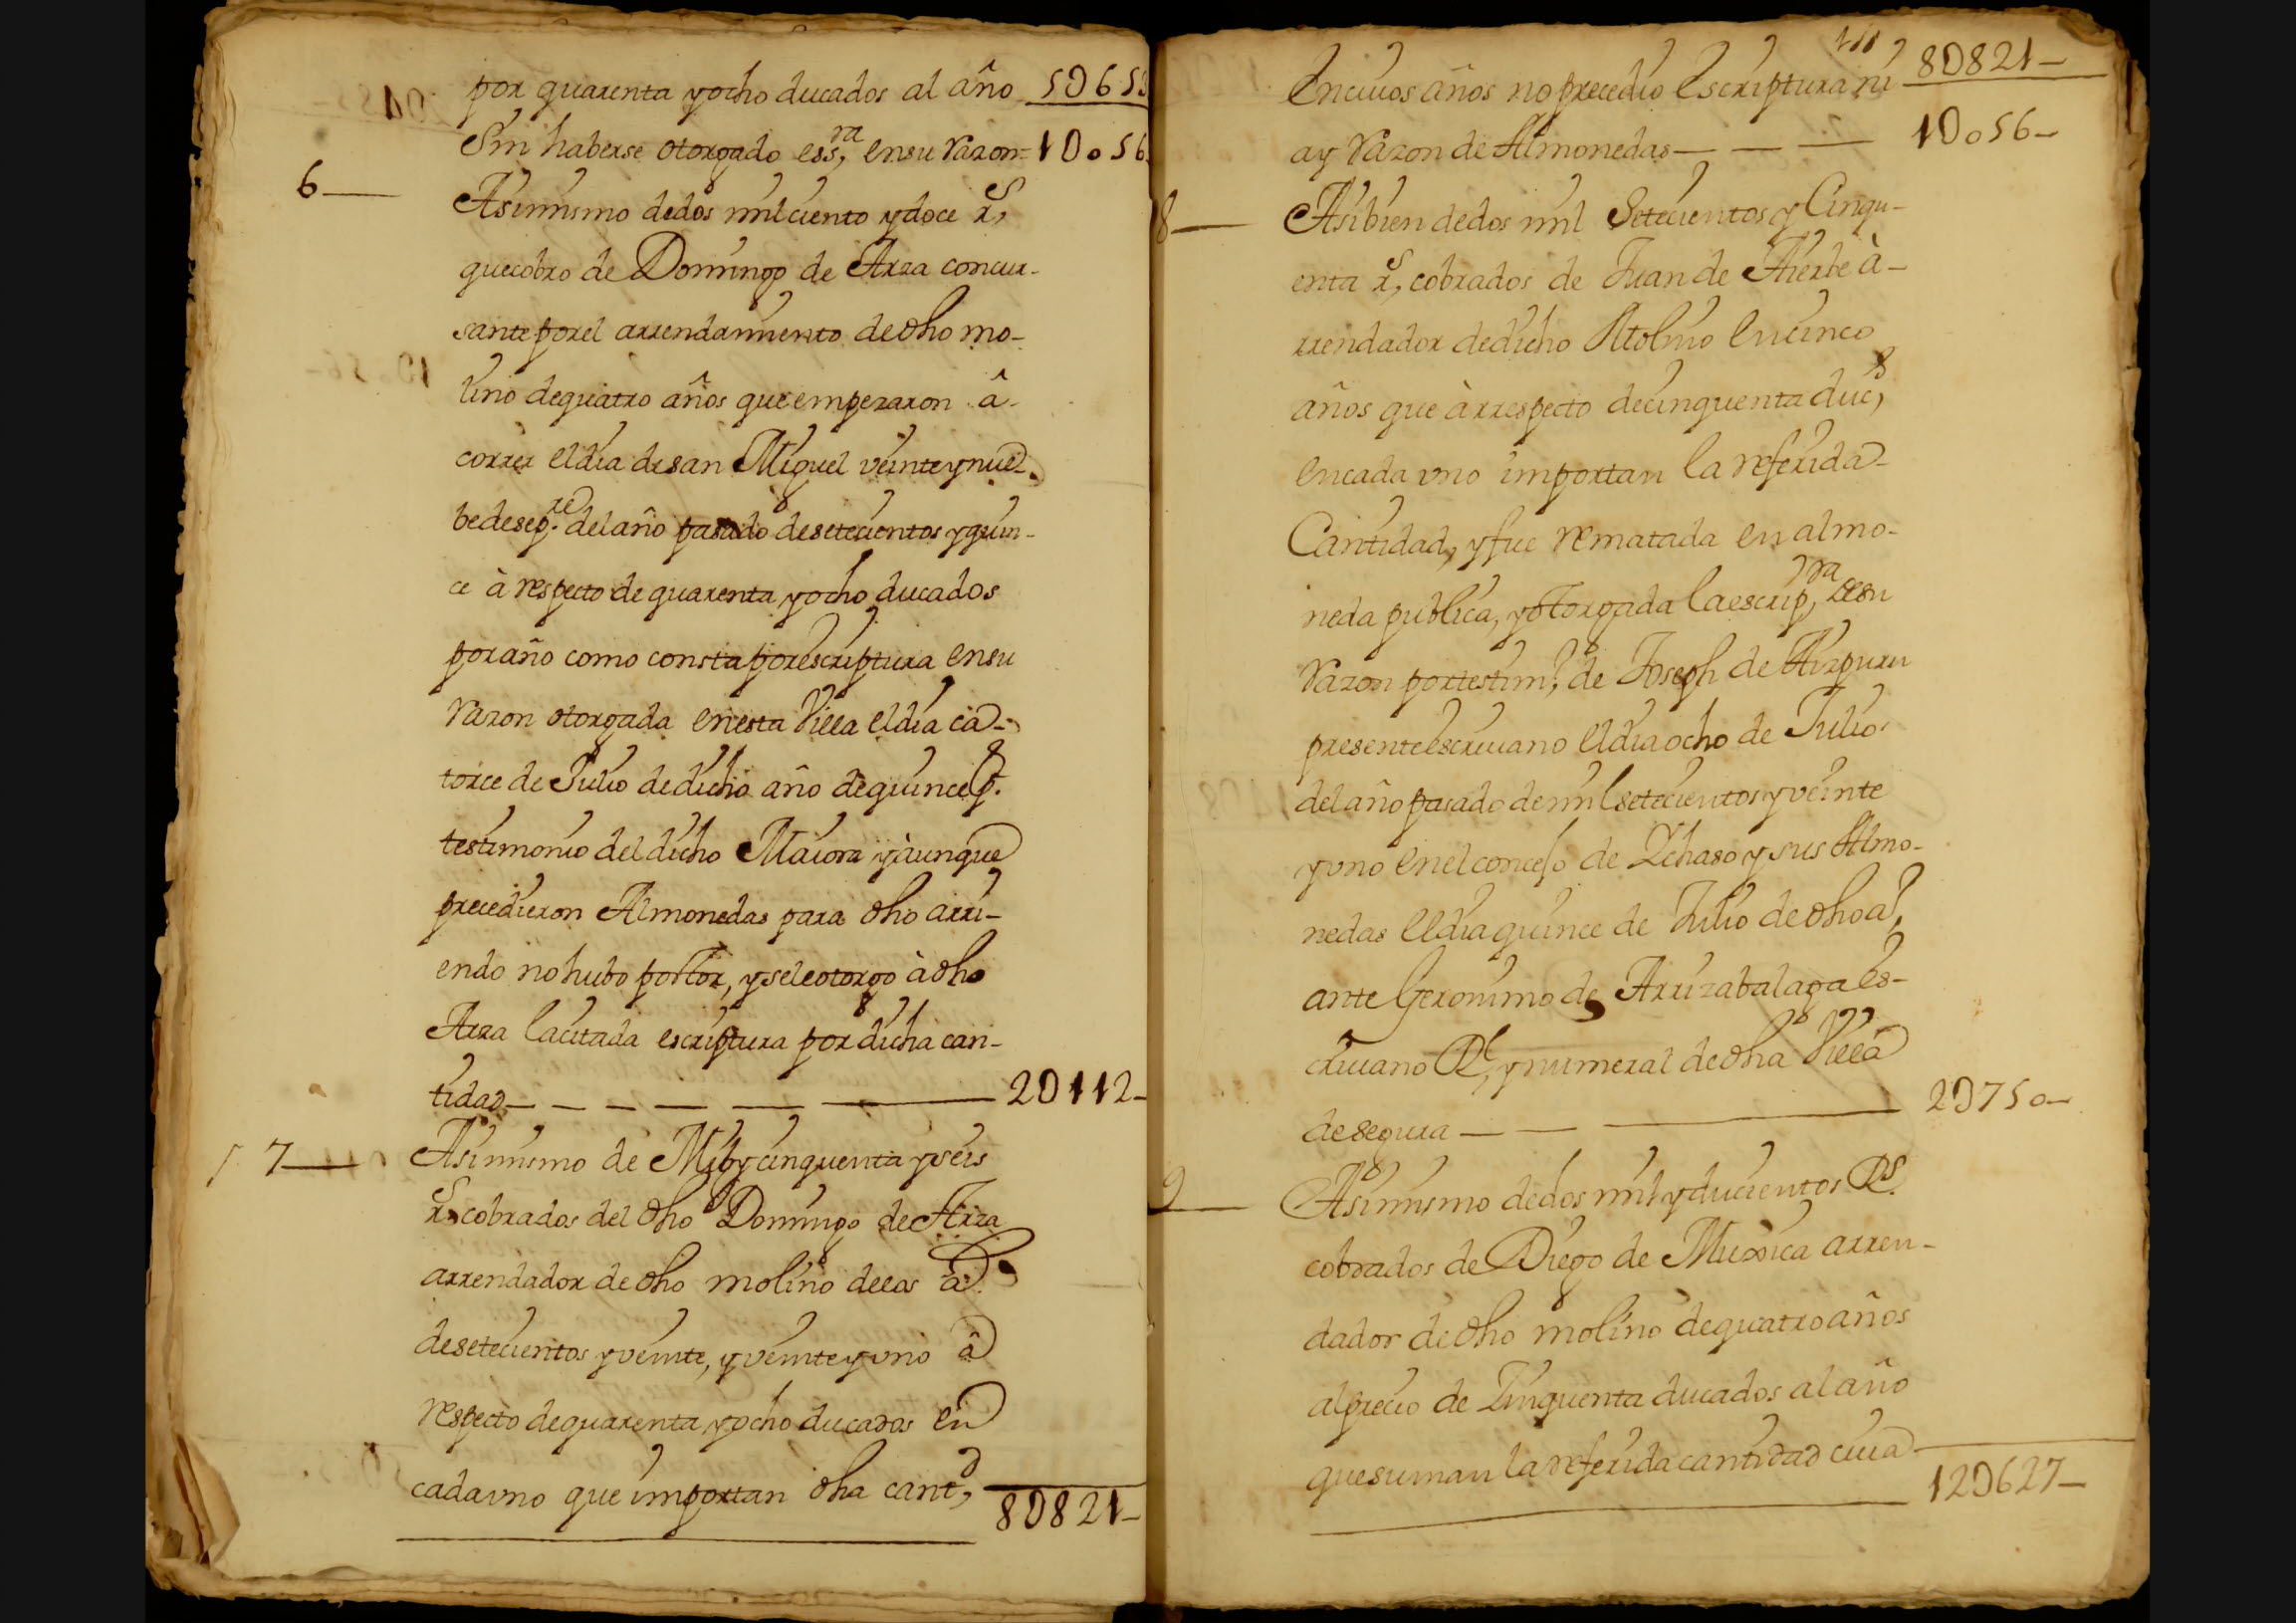 por quarenta y ocho ducados al año 5D653
Sin haberse otorgado essra, en su razon= 1Do56
6— Asimismo de dos mil ciento y doce rs,
que cobro de Domingo de Arza concur-
sante por el arrendamiento de dho mo-
lino de quatro años que empezaron â
correr el dia de san Miguel veinte y nue-
be de sepre. del año pasado de setecientos y quin-
ce à respecto de quarenta y ocho ducados
por año como consta por escriptura en su
razon otorgada en esta Villa el dia ca-
torce de Julio de dicho año de quince p.
testimonio del dicho Maiora y àunque
precedieron Almonedas para dho arri-
endo no hubo postor, y sele otorgo à dho
Arza la citada escriptura por dicha can-
tidad — — — — — — 2D112—
7— Asimismo de Mil y cinquenta y seis
rs, cobrados del dho Domingo de Arza
arrendador de dho molino de los a.
de setecientos y veinte, y veinte y uno â
respecto de quarenta y ocho ducados en
cada uno que importan dha cantd, 8D821—
8D821—
En cuios años no precedio Escriptura ni
ay razon de Almonedas — — — 1Do56—
8— Asi bien de dos mil Setecientos y Cinqu-
enta rs, cobrados de Juan de Aierbe à-
rrendador de dicho Molino en cinco
años que à rrespecto de cinquenta ducs,
en cada vno importan la referida
Cantidad, y fue rematada en almo-
neda publica, y otorgada la escripra, de su
razon por testimo, de Joseph de Aizpuru
presente escriuano el dia ocho de Julio
del año pasado de mil setecientos y veinte
y vno en el concejo de Ichaso y sus Almo-
nedas el dia quince de Julio de dho ao,
ante Geronimo de Arrizabalaga es-
criuano Rl, y numeral de dha Villa
de segura — — — 2D750—
9— Asimismo de dos mil y ducientos Rs.
cobrados de Diego de Muxica arren-
dador de dho molino de quatro años
al precio de Cinquenta ducados al año
que suman la referida cantidad cuia
12D627—